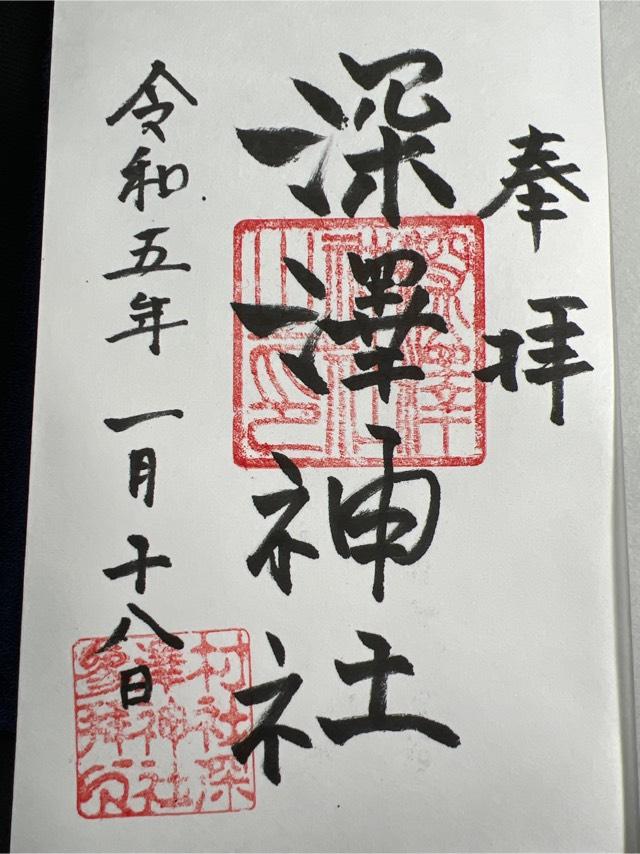 奉拝
深澤神社
令和五年一月十八日
深澤神社之印
村社深澤神社参拝